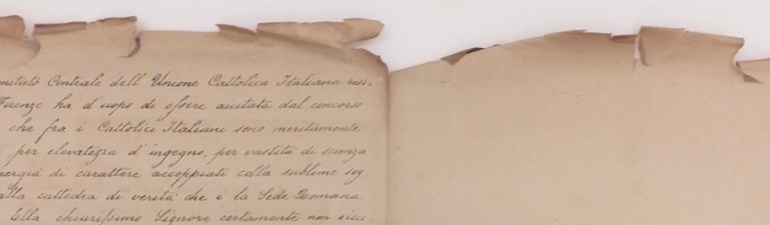 mitato Centrale dell'Unione Cattolica Italiana resi-
Firenze ha d'uopo di essere aiutata dal concorso
che fra i Cattolici Italiani sono meritamente
per elevatezza d'ingegno, per vastità di scienza
nergia di carattere accoppiati colla sublime sog
alla cattedra di verità che è la Sede Romana
Ella chiarissimo Signore certamente non ricu-